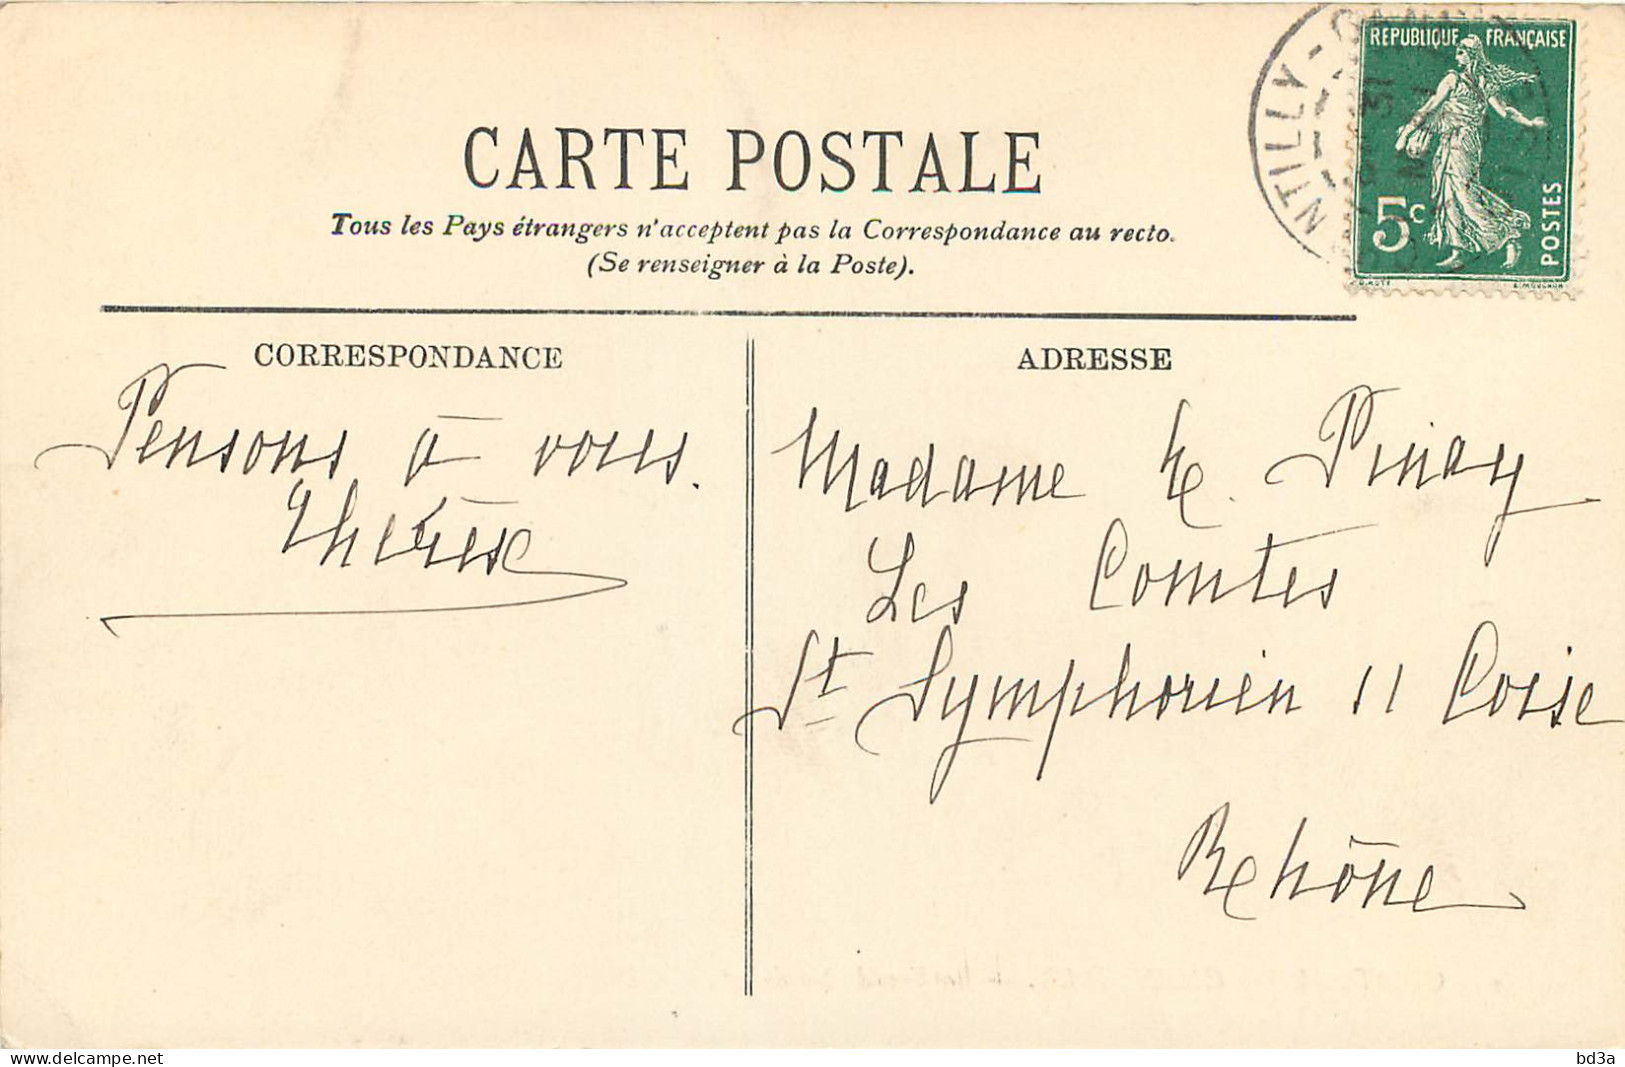 CARTE POSTALE
Tous les Pays étrangers n'acceptent pas la Correspondance au recto.
(Se renseigner à la Poste).
NTILLY
RÉPUBLIQUE FRANÇAISE
5c
POSTES
CORRESPONDANCE
Pensons à vous.
Thérèse
ADRESSE
Madame E. Pinay
Les Comtes
St Symphorien s/ Coise
Rhône
bd3a
delcampe.net